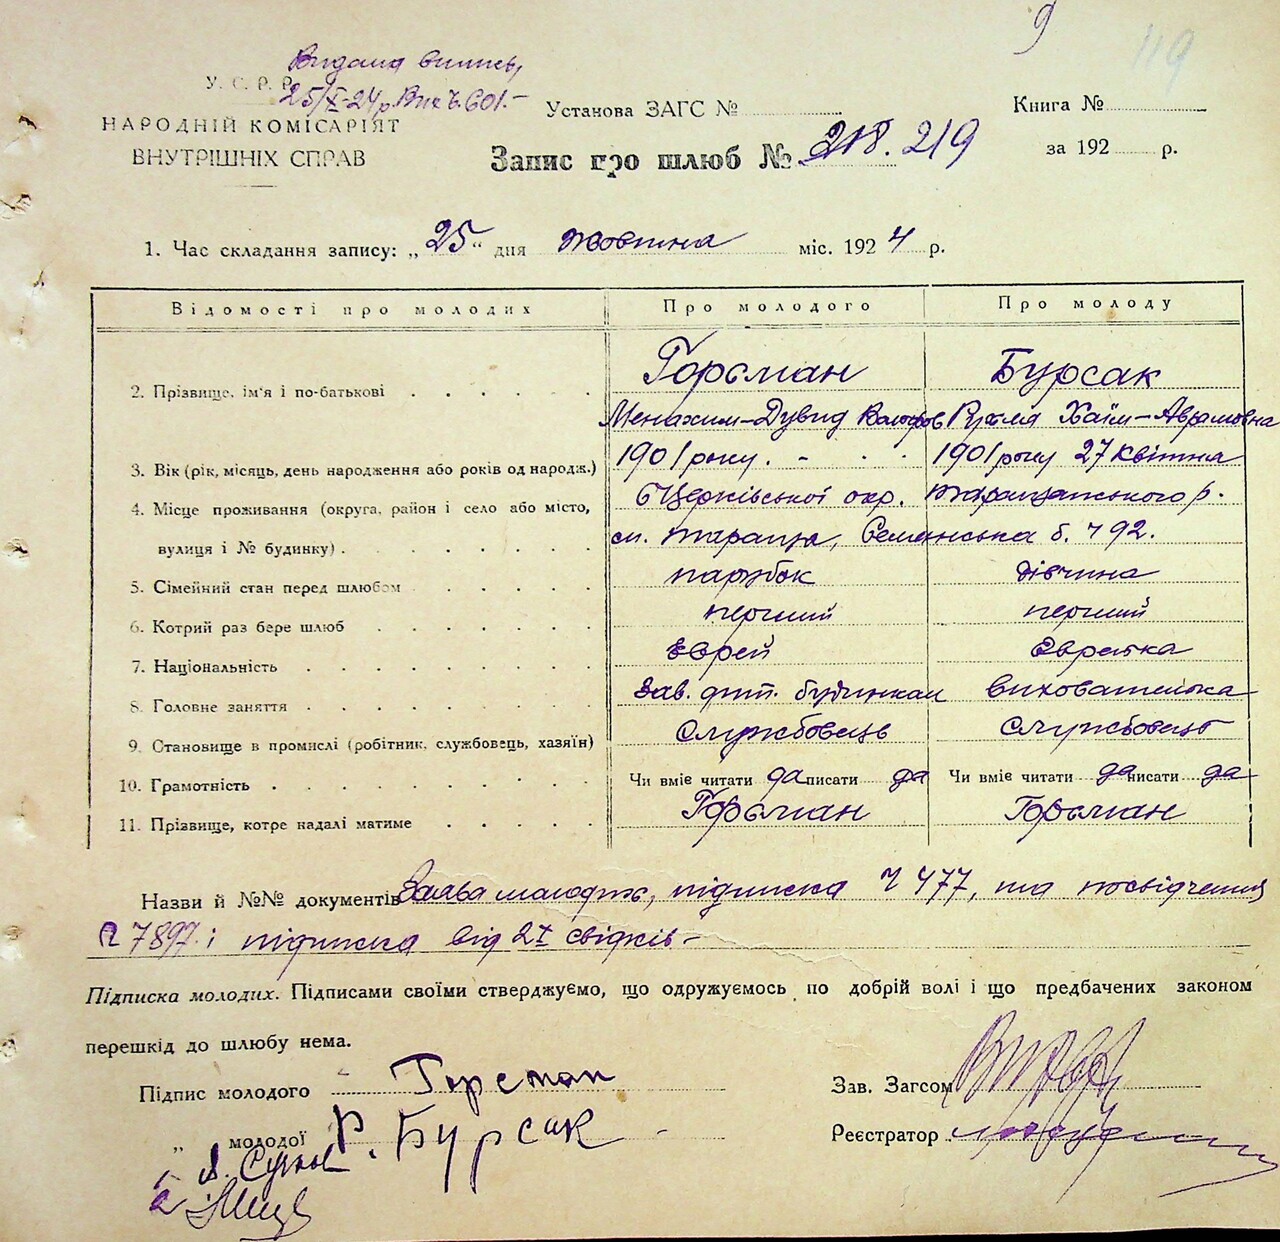 9
119
Видана випись
У. С. Р. Р.
25/X-24 р. Вих. Ч. 601.-
НАРОДНІЙ КОМІСАРІЯТ
ВНУТРІШНІХ СПРАВ
Установа ЗАГС №
Книга №
за 192 р.
Запис про шлюб № 218. 219
1. Час складання запису: „25" дня жовтня міс. 1924 р.
Відомості про молодих Про молодого Про молоду
2. Прізвище, ім'я і по-батькові Горсман Бурсак
Менахим-Дувид Рухля Хаїм-Аврамовна
3. Вік (рік, місяць, день народження або років од народж.) 1901 року. 1901 року 27 квітня
4. Місце проживання (округа, район і село або місто, БЦерківської окр. Таращанського р.
вулиця і № будинку) м. Тараща, б. ч 92.
5. Сімейний стан перед шлюбом парубок дівчина
6. Котрий раз бере шлюб перший перший
7. Національність Еврей Еврейка
8. Головне заняття Зав. дит. будинком вихователька
9. Становище в промислі (робітник, службовець, хазяїн) службовець службовець
10. Грамотність Чи вміє читати да писати да Чи вміє читати да писати да
11. Прізвище, котре надалі матиме Горсман Горсман
Назви й №№ документів Заява молодж, підписка Ч 477, та посвідчення
7897. і підписка від 2х свідків-
Підписка молодих. Підписами своїми стверджуємо, що одружуємось по добрій волі і що предбачених законом
перешкід до шлюбу нема.
Підпис молодого Горсман
Зав. Загсом
„ молодої Р. Бурсак
Реєстратор